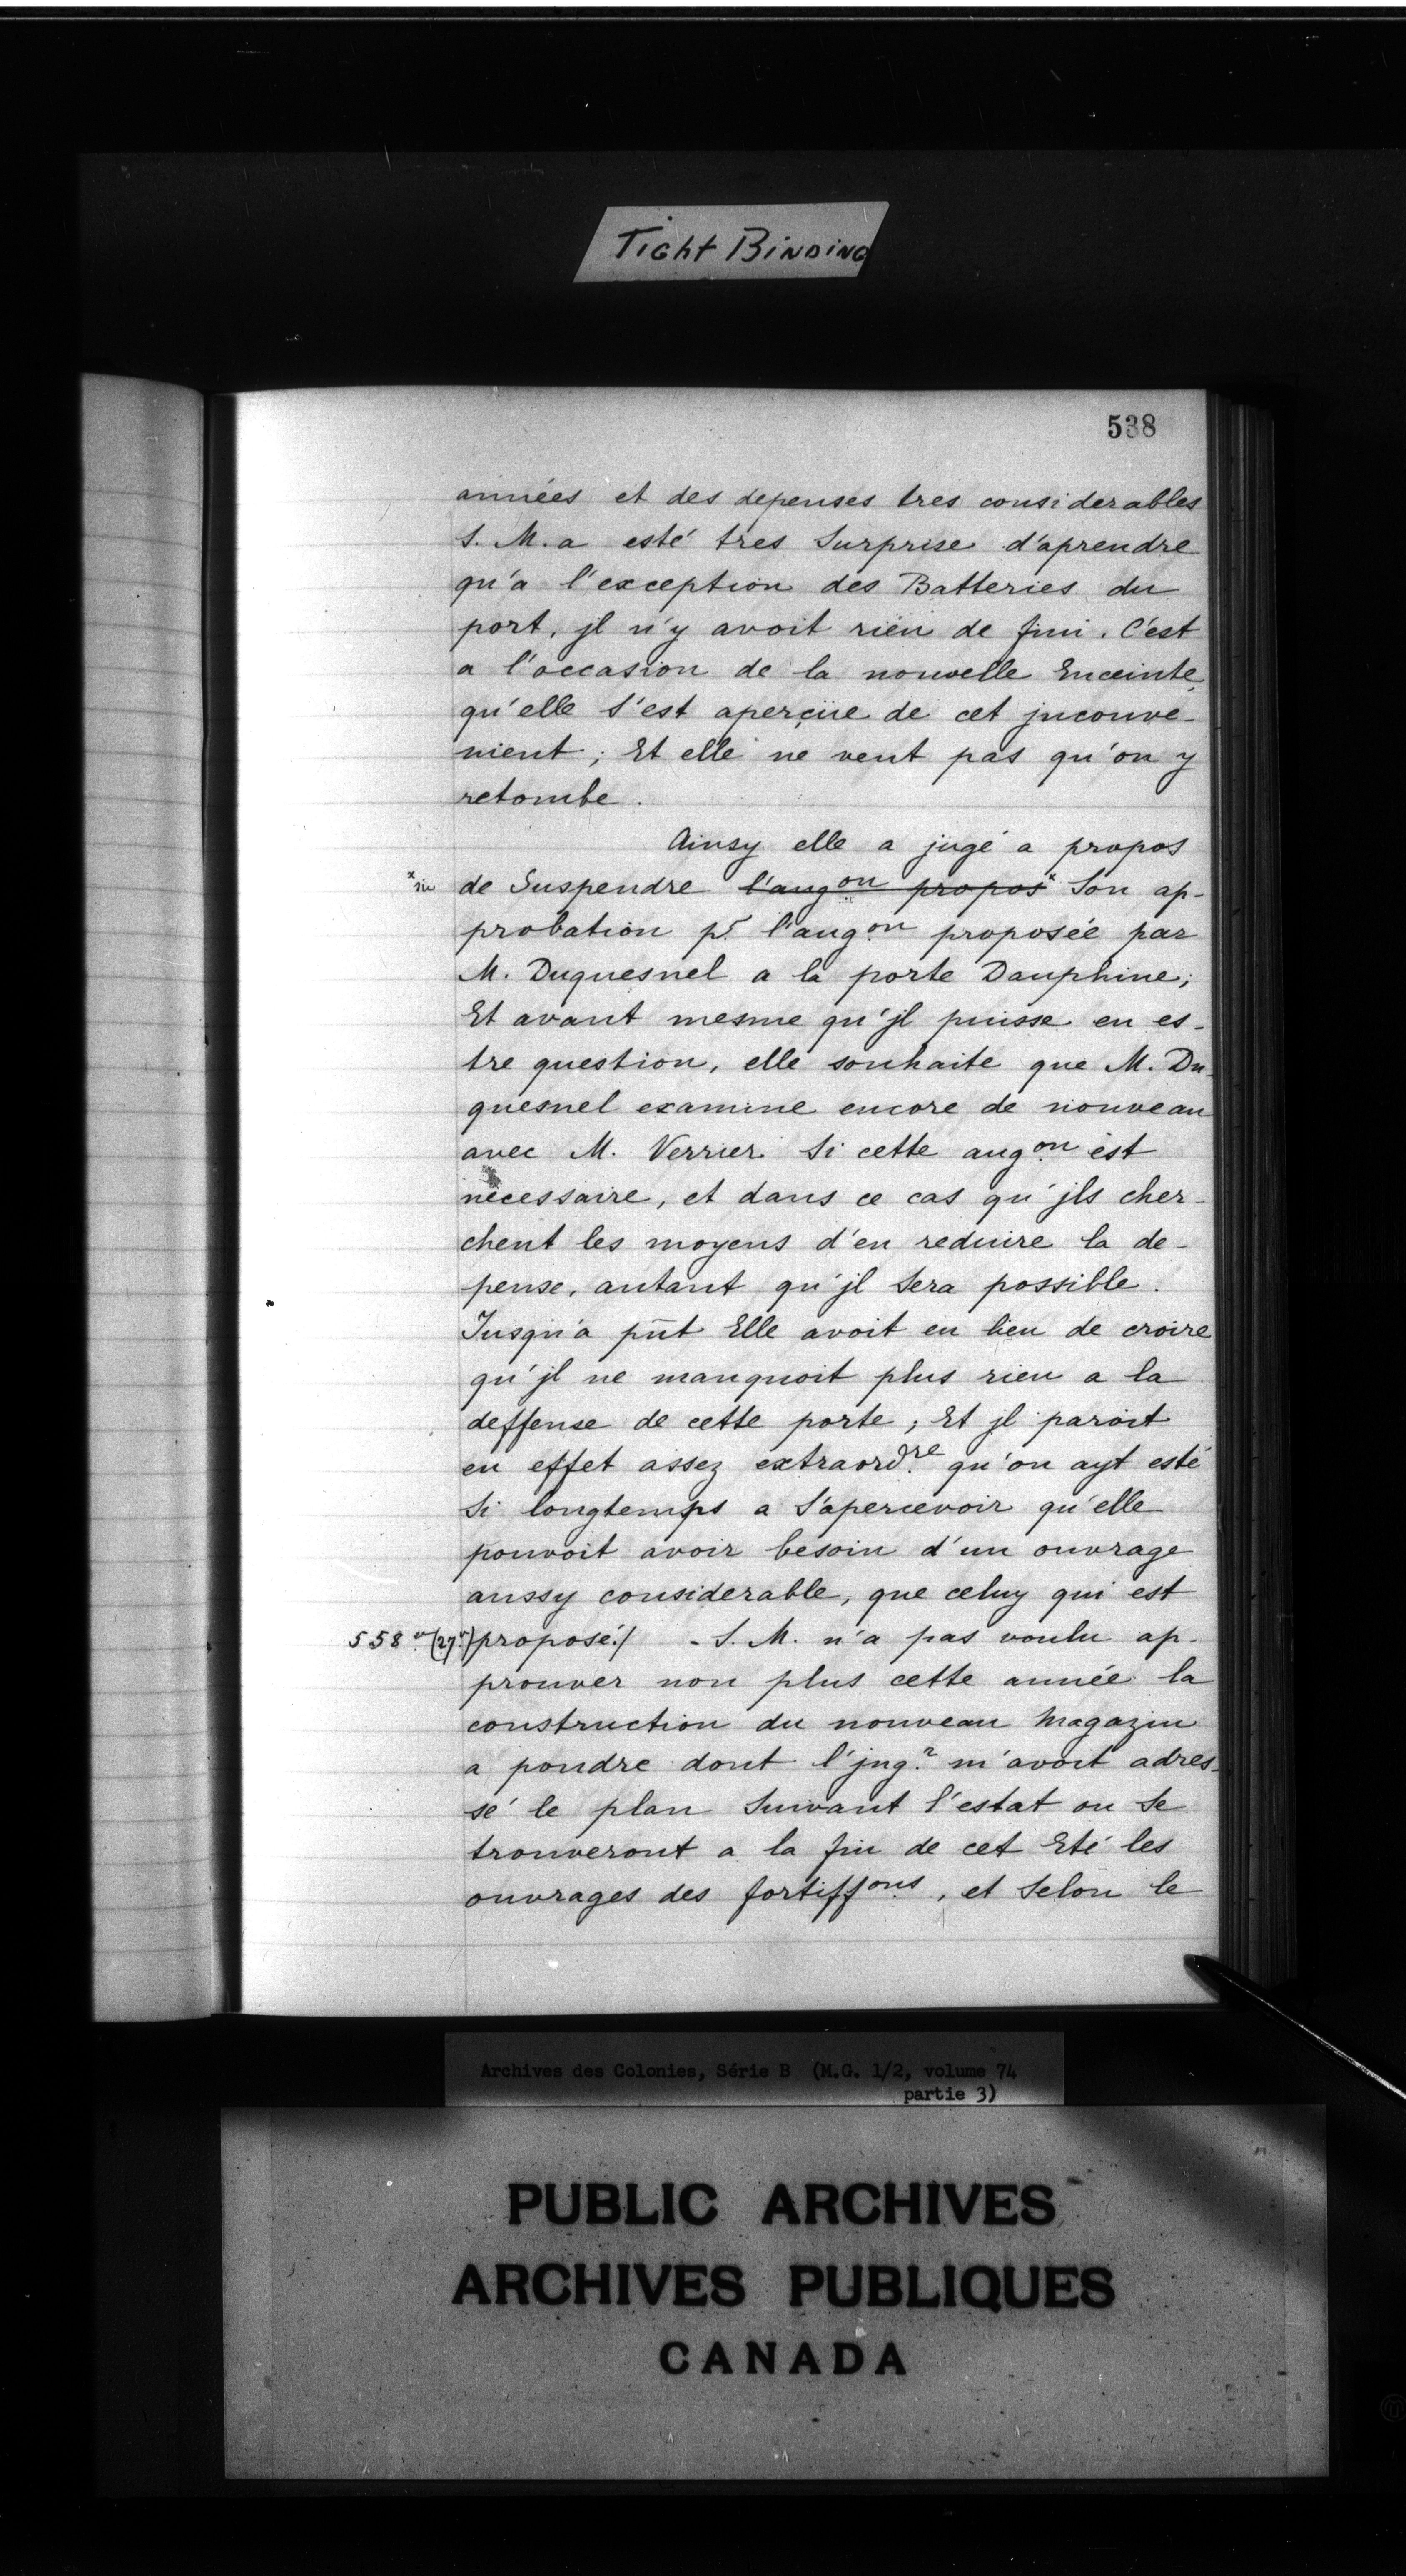 Tight Binding
538
années et des depenses tres considerables
S. M. a esté tres Surprise d'aprendre
qu'a l'exception des Batteries du
port, jl n'y avoit rien de fini. C'est
a l'occasion de la nouvelle Enceinte
qu'elle s'est aperçüe de cet jnconve-
nient; Et elle ne veut pas qu'on y
retombe.
Ainsy elle a jugé a propos
*sic de Suspendre l'augon propos* Son ap-
probation pr. l'augon proposée par
M. Duquesnel a la porte Dauphine;
Et avant mesme qu'jl puisse en es-
tre question, elle souhaite que M. Du-
quesnel examine encore de nouveau
avec M. Verrier Si cette augon est
necessaire, et dans ce cas qu'jls cher-
chent les moyens d'en reduire la de-
pense, autant qu'jl Sera possible.
Jusqu'a pñt Elle avoit eu lieu de croire
qu'jl ne manquoit plus rien a la
deffense de cette porte; Et jl paroit
en effet assez extraordre qu'on ayt esté
Si longtemps a S'apercevoir qu'elle
pouvoit avoir besoin d'un ouvrage
aussy considerable, que celuy qui est
558 v (27 v) proposé./ - S. M. n'a pas voulu ap-
prouver non plus cette année la
construction du nouveau Magazin
a poudre dont l'jngr m'avoit adres-
sé le plan Suivant l'estat ou Se
trouveront a la fin de cet Eté les
ouvrages des fortiffons, et Selon le
Archives des Colonies, Série B (M.G. 1/2, volume 74
partie 3)
PUBLIC ARCHIVES
ARCHIVES PUBLIQUES
CANADA